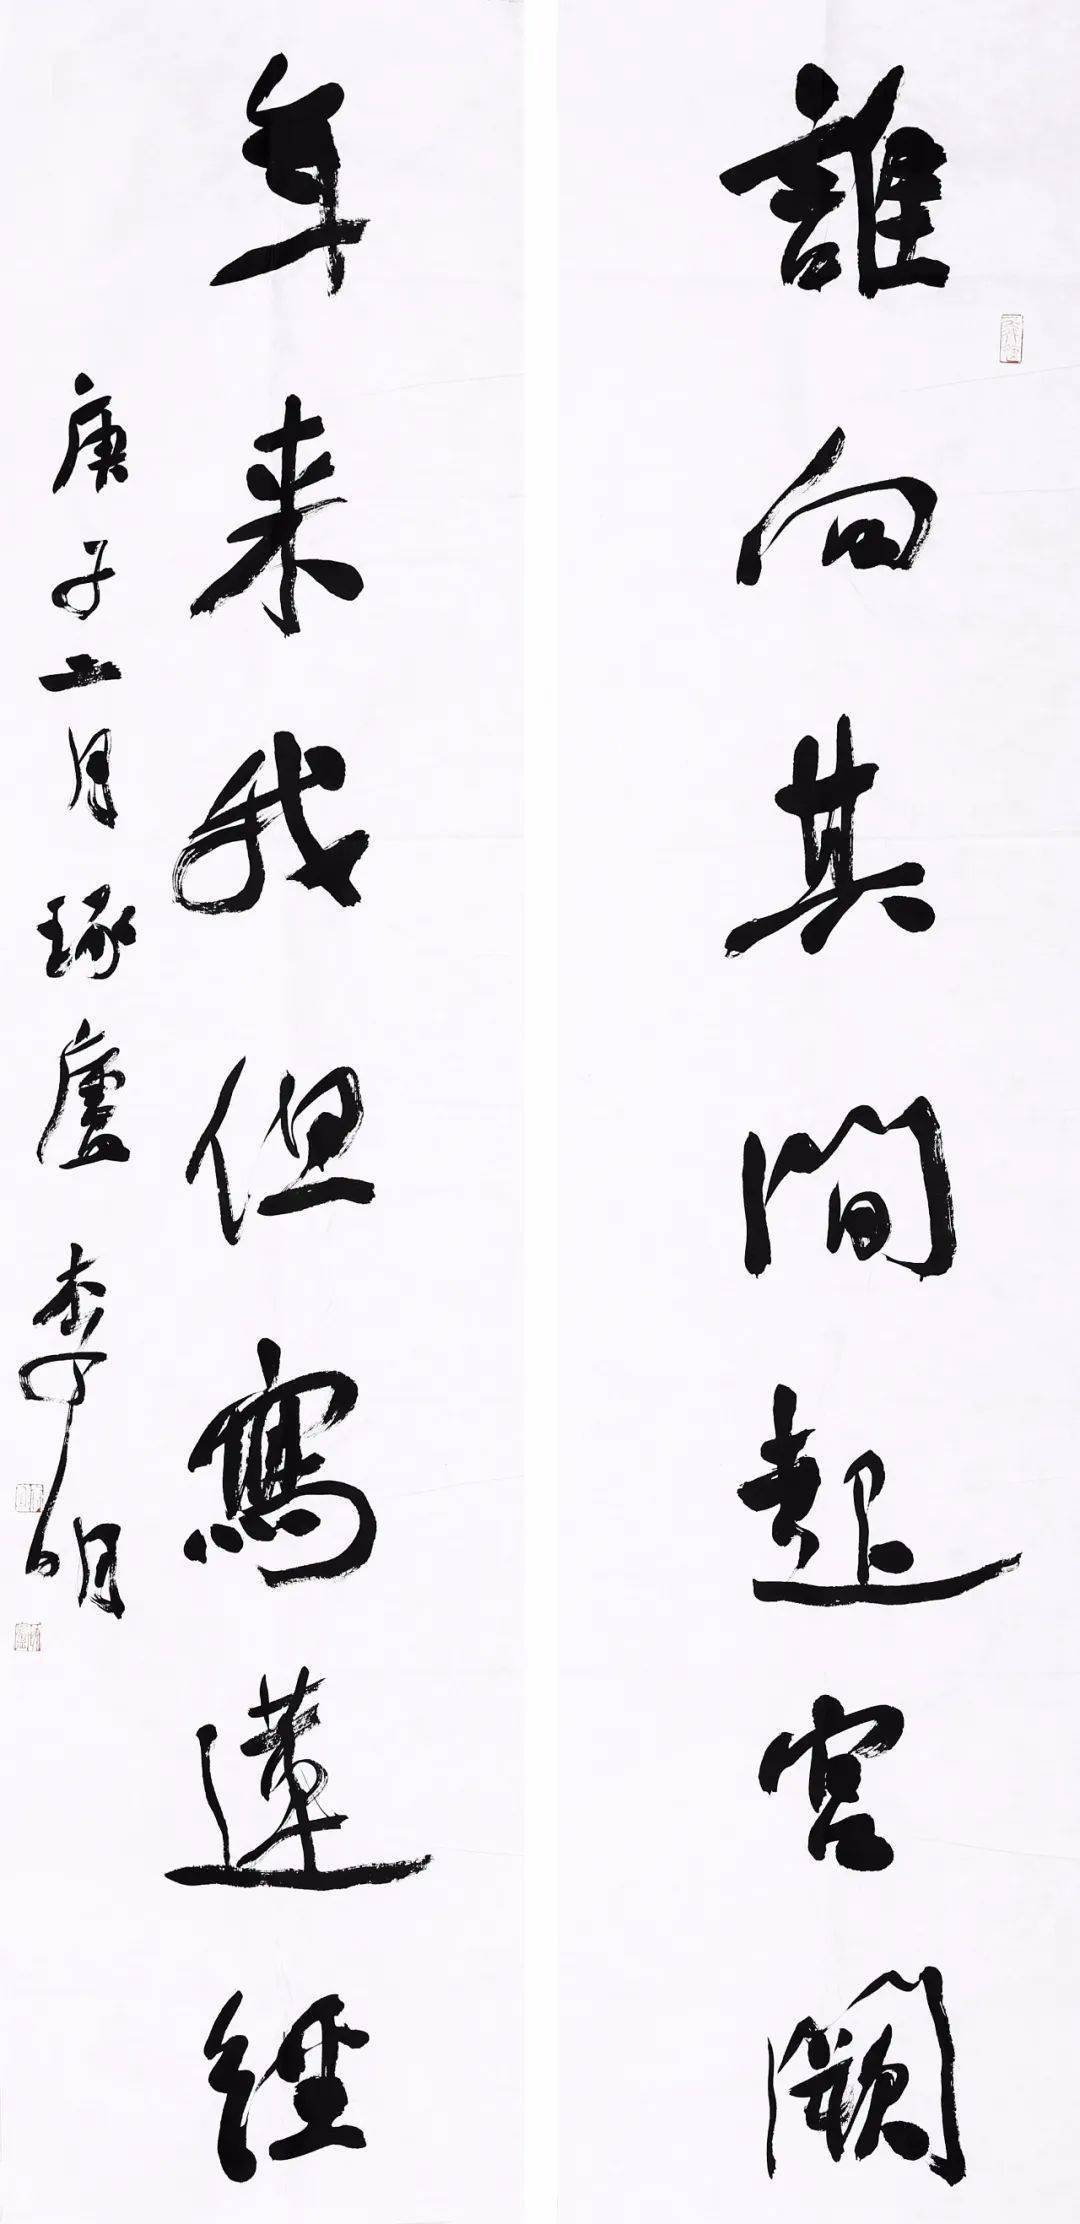 誰向其間起宮闕
年来我但寫蓮經
庚子二月琢廬李明